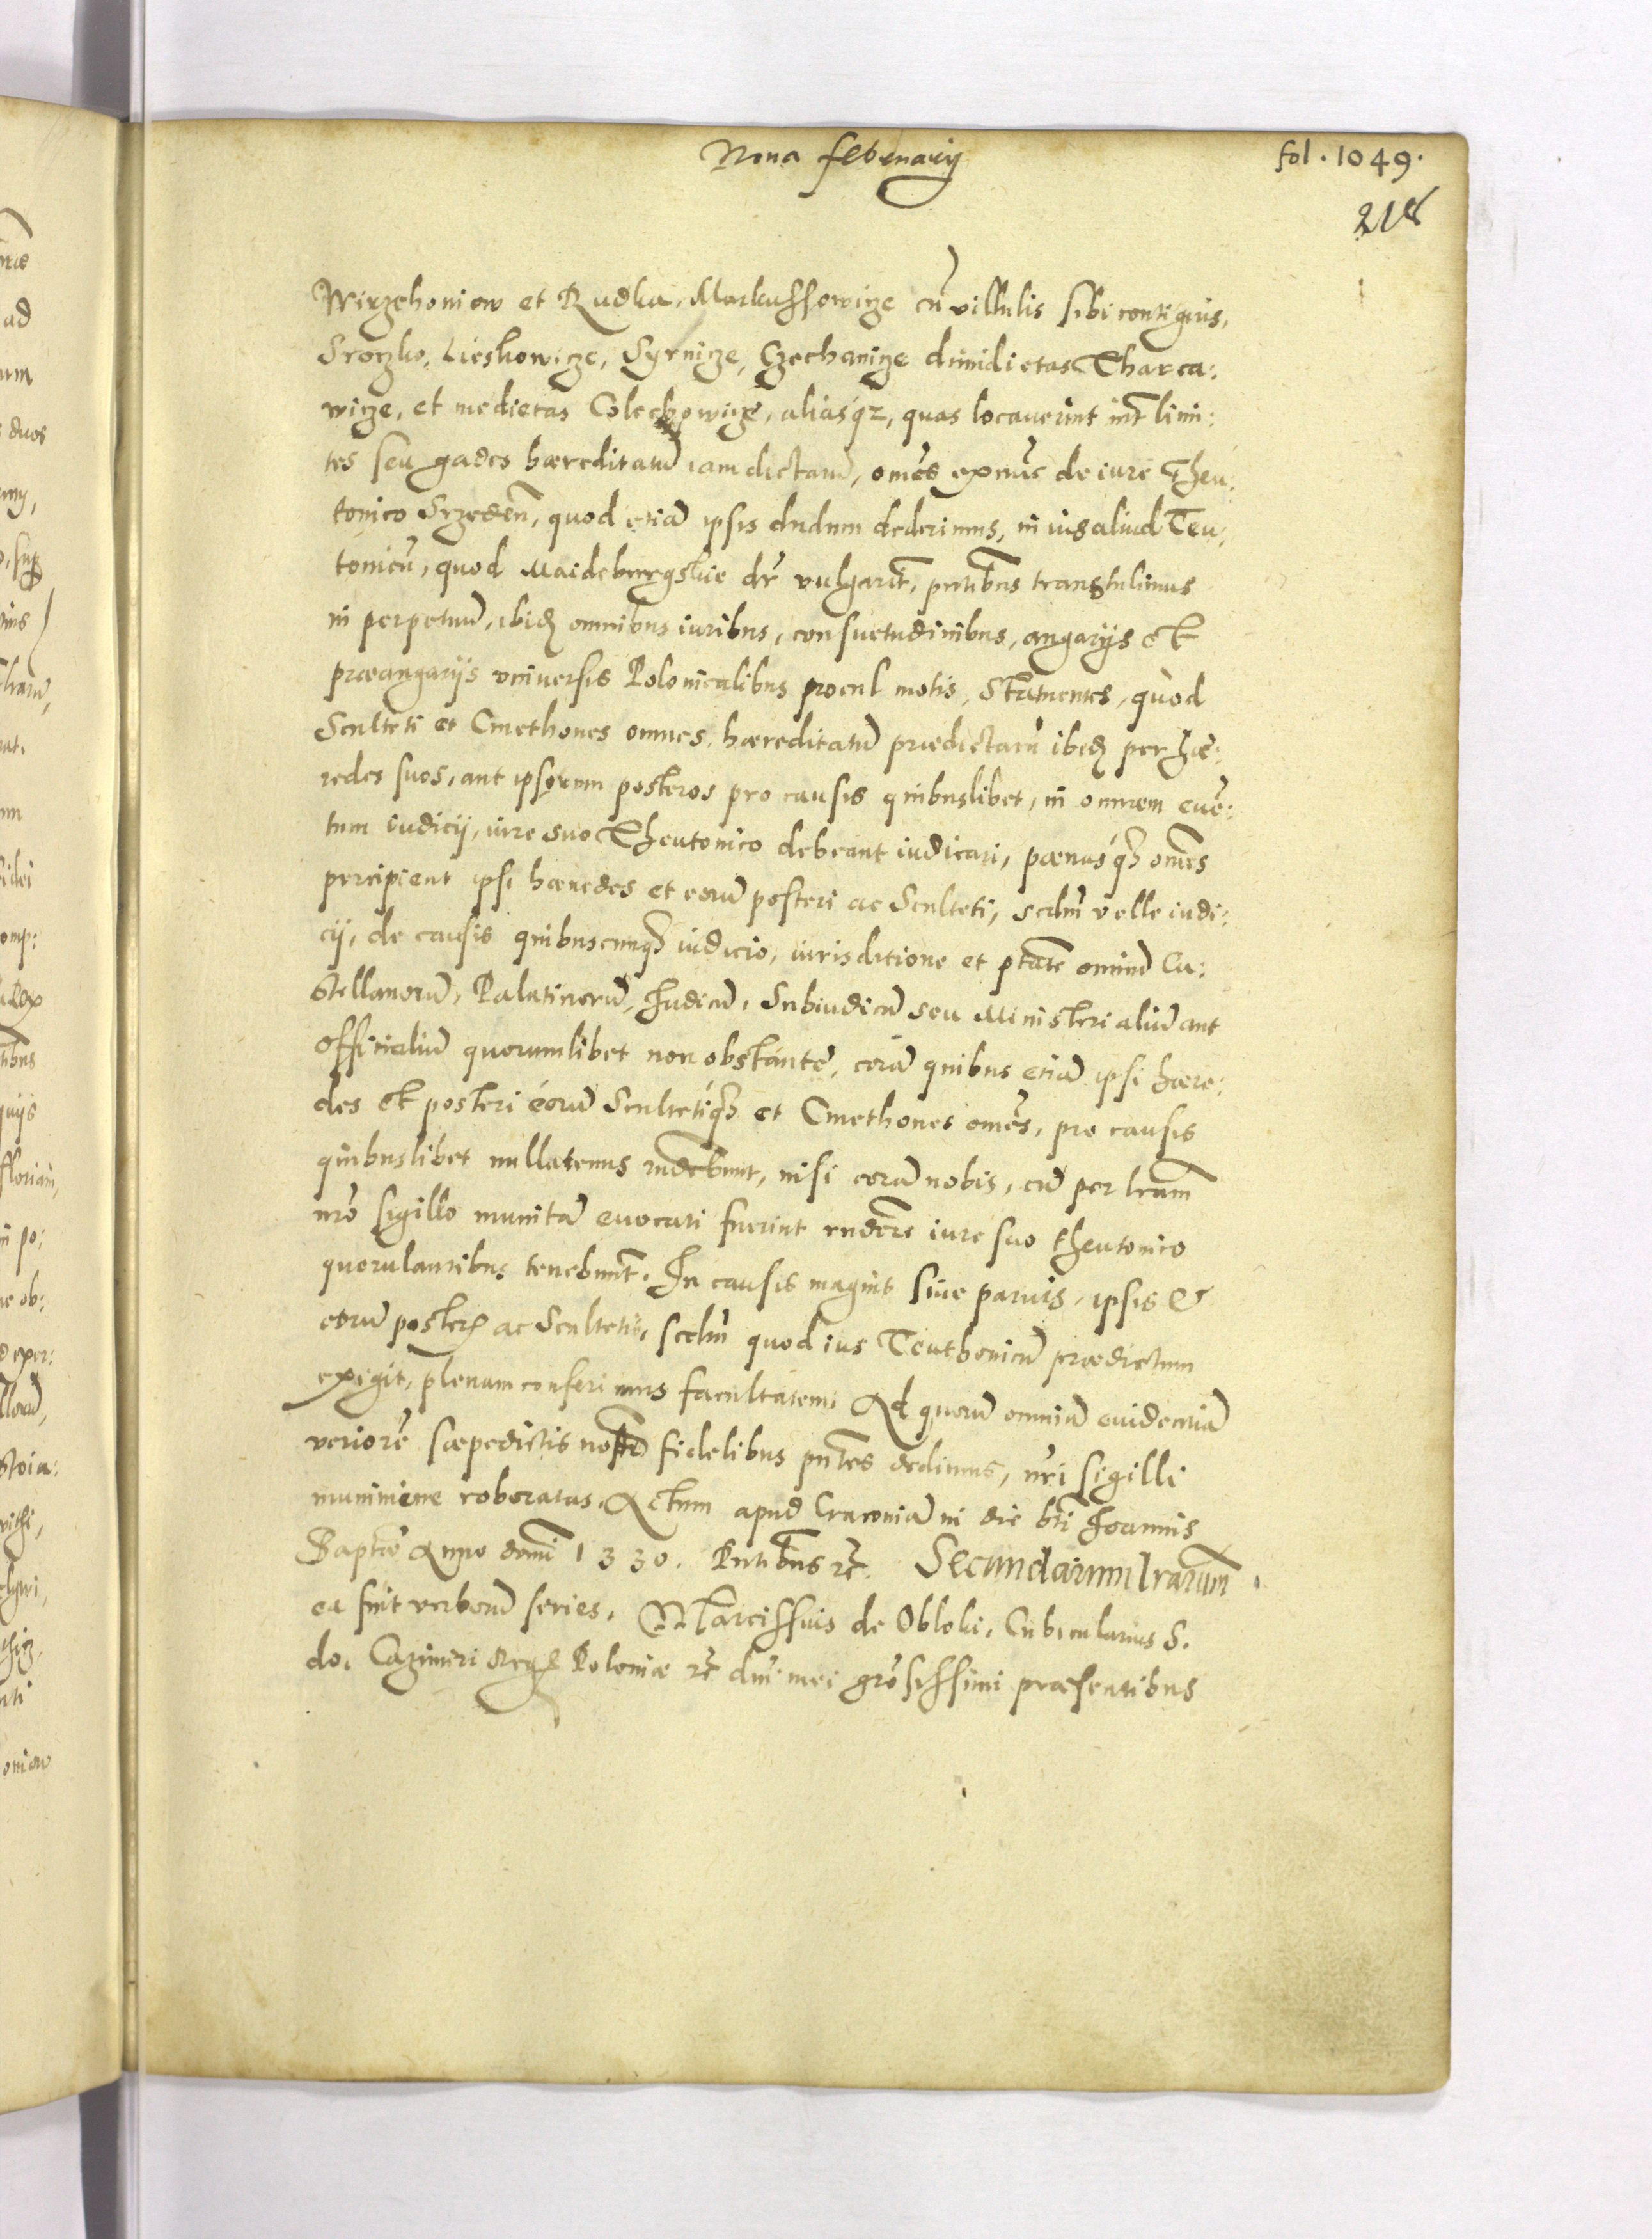 Nona februarij
fol. 1049.
218
Wirzchoniow et Rudka, Markussowicze cũ villulis sibi contiguis,
Sroczko, Lieskowicze, Syrnicze, Czechanicze dimidietas Tharca:
wicze, et medietas Coleckowicze, aliasq́z, quas locauerint int̃ limi:
tes seu gades hæreditatũ iam dictarũ, om̃es ex nũc de iure Theu:
tonico Srzedeñ, quod etiã ipsis dudum dederimus, in ius aliud Teu:
tonicũ, quod Maideburgskie dr̃ vulgarit̃, pñtibus transtulimus
in perpetuũ, ibid̃ omnibus iuribus, consuetudinibus, angarijs et
præangarijs vniuersis Polonicalibus procul motis, Statuentes, quòd
Sculteti et Cmethones omnes, hæreditatũ prædictarũ ibid̃ per hæ:
redes suos, aut ipsorum posteros pro causis quibuslibet, in omnem euẽ:
tum iudicij, iure suo Theutonico debeant iudicari, pænasq́ʒ om̃es
percipient ipsi hæredes et eorũ posteri ac Sculteti, scdm̃ velle iudi:
cij, de causis quibuscunqʒ iudicio, iurisditione et ptãte omniũ Ca:
stellanorũ, Palatinorũ, Iudicũ, Subiudicũ seu Ministerialiũ aut
officialiũ quorumlibet non obstante, corã quibus etiã ipsi hære:
des et posteri eorũ Scultetiq́ʒ et Cmethones om̃es, pro causis
quibuslibet nullatenus rñdebunt, nisi corã nobis, cũ per lr̃am
nr̃o sigillo munitã euocati fuerint rñdere iure suo theutonico
querulantibus tenebunt̃. In causis magnis siue paruis, ipsis &
eorũ poster̃ ac Scultetis, scdm̃ quod ius Teuthonicũ prædictum
exigit, plenam conferimus facultatem. Ad quorũ omniũ euidentiã
veriorẽ sæpedictis nostr̃ fidelibus pñtes dedimus, nr̃i sigilli
munimine roboratas. Actum apud Cracouiã in die bt̃i Ioannis
Baptæ Anno domĩ 1330. Pñtibus rc̃. Secundarum lrarum
ea fuit verborũ series. Narcissus de Obloki, Cubicularius S.
do. Cazimiri Reg̃ Poloniæ rc̃ dñi mei grõsissimi præsentibus